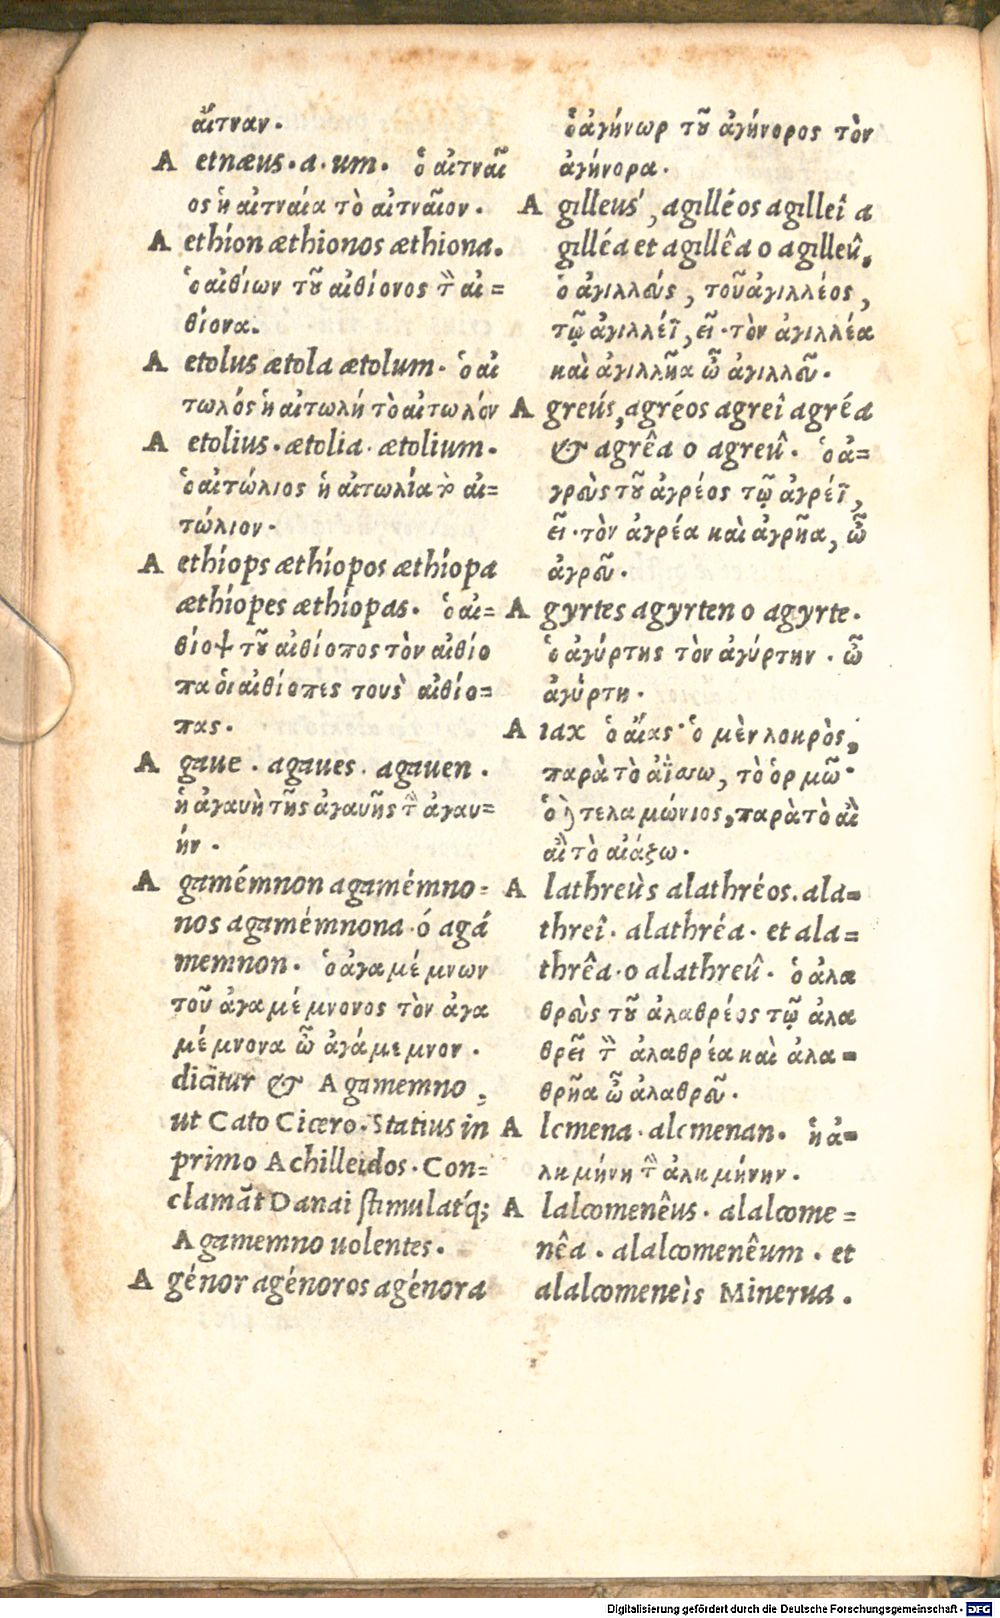 αἴτναν.
A etnæus. a. um. ὁ αἰτναῖ
ος ἡ αἰτναία τὸ αἰτναῖον.
A ethíon æthionos æthiona.
ὁ αἰθίων τοῦ αἰθίονος τὸν αἰ=
θίονα.
A etolus ætola ætolum. ὁ αἰ
τωλός ἡ αἰτωλή τὸ αἰτωλόν
A etolius. ætolia. ætolium.
ὁ αἰτώλιος ἡ αἰτωλία τὸ αἰ=
τώλιον.
A ethíops æthíopos æthíopa
æthíopes æthíopas. ὁ αἰ=
θίοψ τοῦ αἰθίοπος τὸν αἰθίο
πα ὁι αἰθίοπες τους αἰθίο=
πας.
A gaue. agaues. agauen.
ἡ ἀγαυὴ τῆς ἀγαυῆς τὴν ἀγαυ=
ήν.
A gamémnon agamémno=
nos agamémnona. ó agá
memnon. ὁ ἀγαμέμνων
τοῦ ἀγαμέμνονος τὸν ἀγα
μέμνονα ὦ ἀγάμεμνον.
dicitur & Agamemno,
ut Cato Cicero. Statius in
primo Achilleidos. Con=
clamãt Danai stimulatq́;
Agamemno uolentes.
A génor agénoros agénora
ὁ ἀγήνωρ τοῦ ἀγήνορος τὸν
ἀγήνορα.
A gilleus, agilléos agilleî a
gilléa et agillêa o agilleû,
ὁ ἀγιλλεύς, τοῦ ἀγιλλέος,
τῷ ἀγιλλέϊ, εῖ. τὸν ἀγιλλέα
καὶ ἀγιλλῆα ὦ ἀγιλλεῦ.
A greús, agréos agreî agréa
& agrêa o agreû. ὁ ἀ=
γρεὺς τοῦ ἀγρέος τῷ ἀγρέϊ,
εῖ. τὸν ἀγρέα καὶ ἀγρῆα, ὦ
ἀγρεῦ.
A gyrtes agyrten o agyrte.
ὁ ἀγύρτης τὸν ἀγύρτην. ὦ
ἀγύρτη.
A iax ὁ αἴας ὁ μὲν λοκρὸς,
παρὰ τὸ ἀΐσσω, τὸ ὁρμῶ.
ὁ δὲ τελαμώνιος, παρὰ τὸ αἲ
αἲ τὸ αἰάζω.
A lathreùs alathréos. ala=
threî. alathréa. et ala=
thrêa. o alathreû. ὁ ἀλα
θρεὺς τοῦ ἀλαθρέος τῷ ἀλα
θρεῖ τὸν ἀλαθρέα καὶ ἀλα=
θρῆα ὦ ἀλαθρεῦ.
A lcmena. alcmenan. ἡ ἀ=
λκμήνη τὴν ἀλκμήνην.
A lalcomenêus. alalcome=
nêa. alalcomenêum. et
alalcomeneìs Minerua.
Digitalisierung gefördert durch die Deutsche Forschungsgemeinschaft - DFG